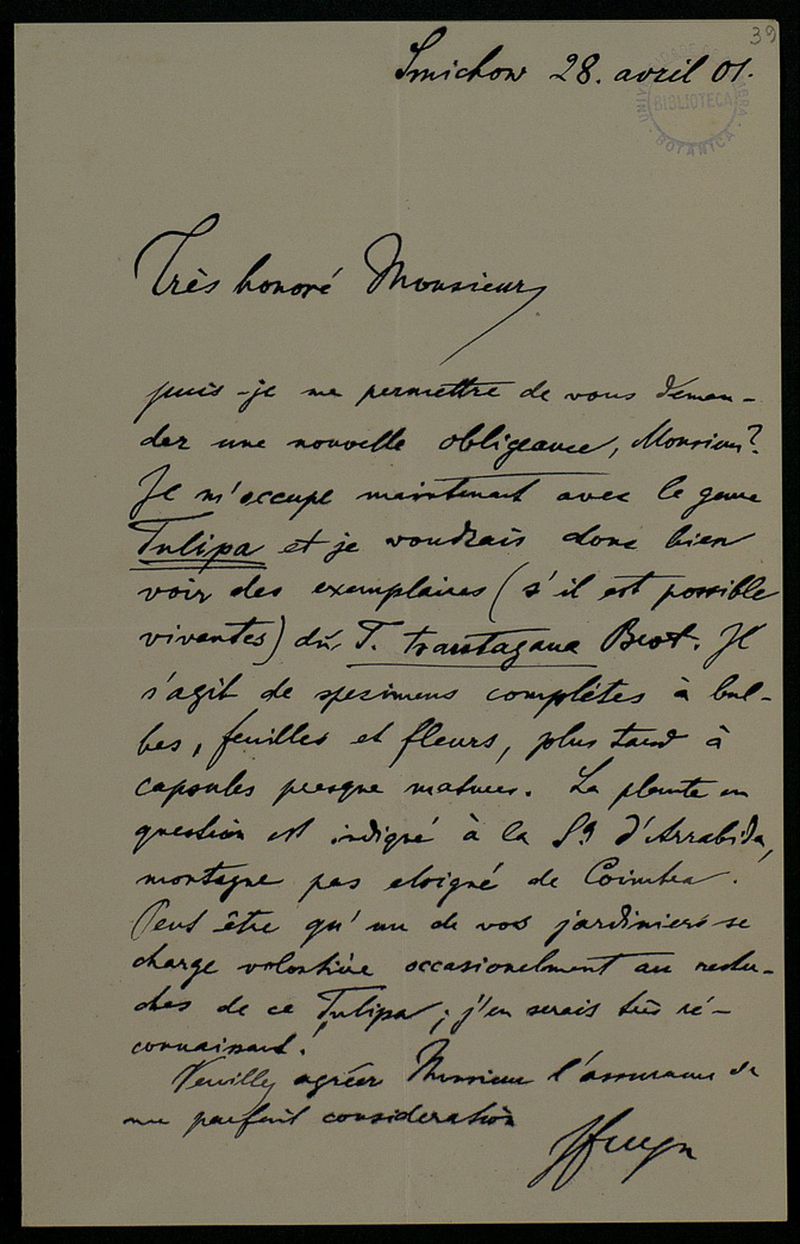 39
Smichow 28. avril 01.
BIBLIOTECA
BOTANICA
Très honoré Monsieur,
puis-je me permettre de vous deman-
der une nouvelle obligeance, Monsieur?
Je m'occupe maintenant avec le genre
Tulipa et je voudrais donc bien
voir des exemplaires (s'il est possible
viventes) du T. transtagana Brot. Il
s'agit de spesimens complètes à bul-
bes, feuilles et fleurs, plus tard à
capsules presque matures. La plante en
question est indiqué à la Sa d'Arrabida,
montagne pas eloigné de Coimbra.
Peut être qu'un de vos jardiniers se
charge volontière occasionelment au reche-
ches de ce Tulipa; j'en serais très ré-
connaissant!
Veuillez agréer Monsieur l'assurance de
ma parfait consideration